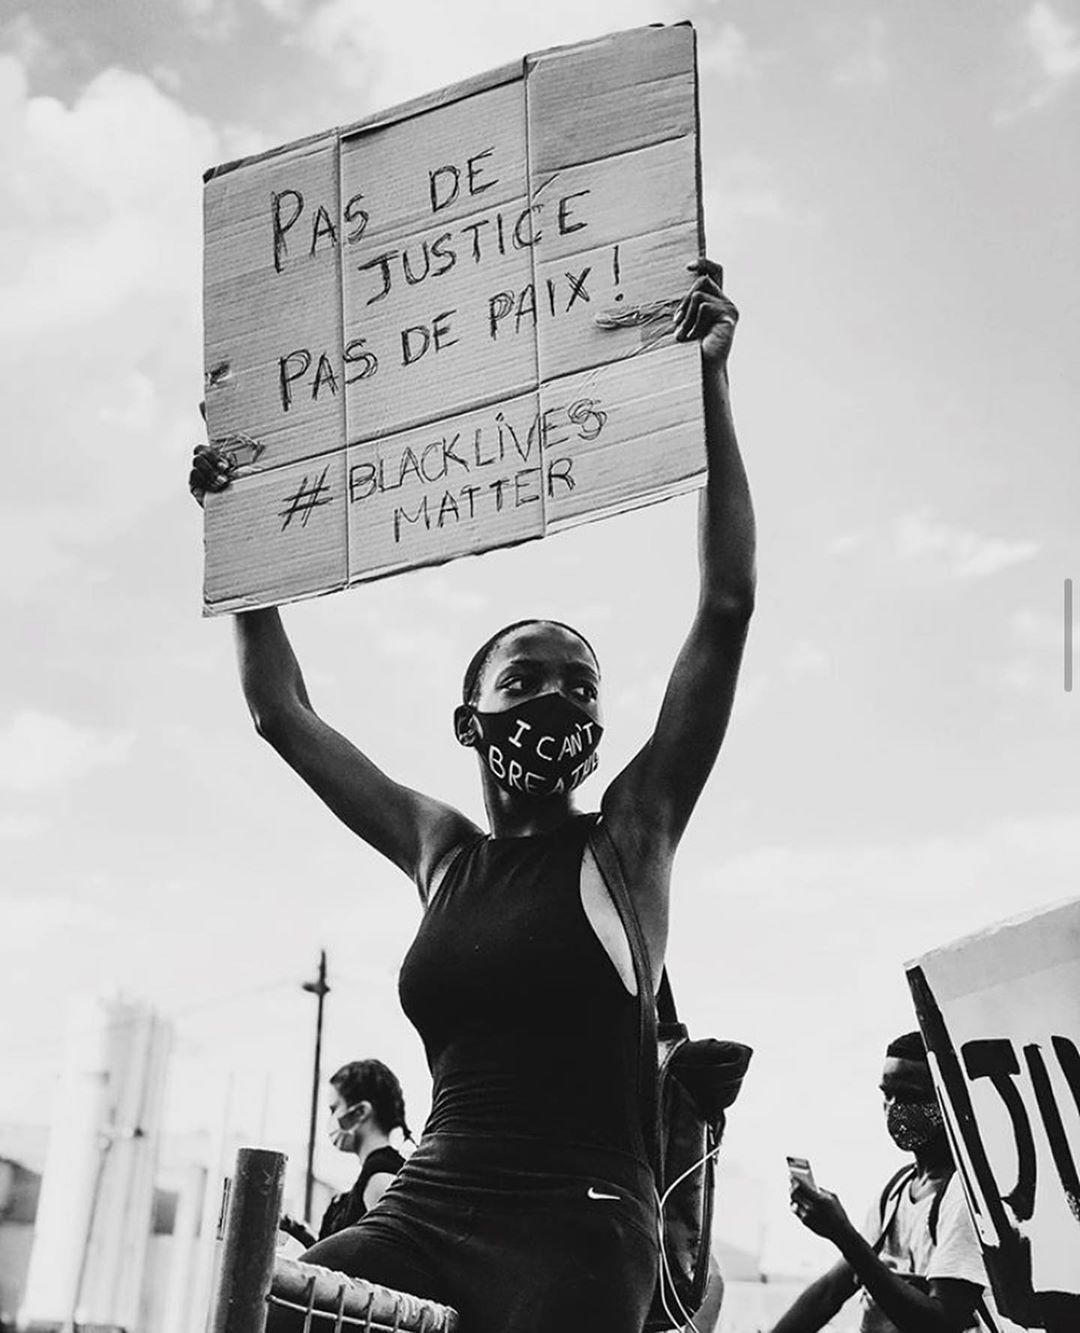 PAS DE
JUSTICE
PAS DE PAIX!
#BLACKLIVES
MATTER
I CAN'T